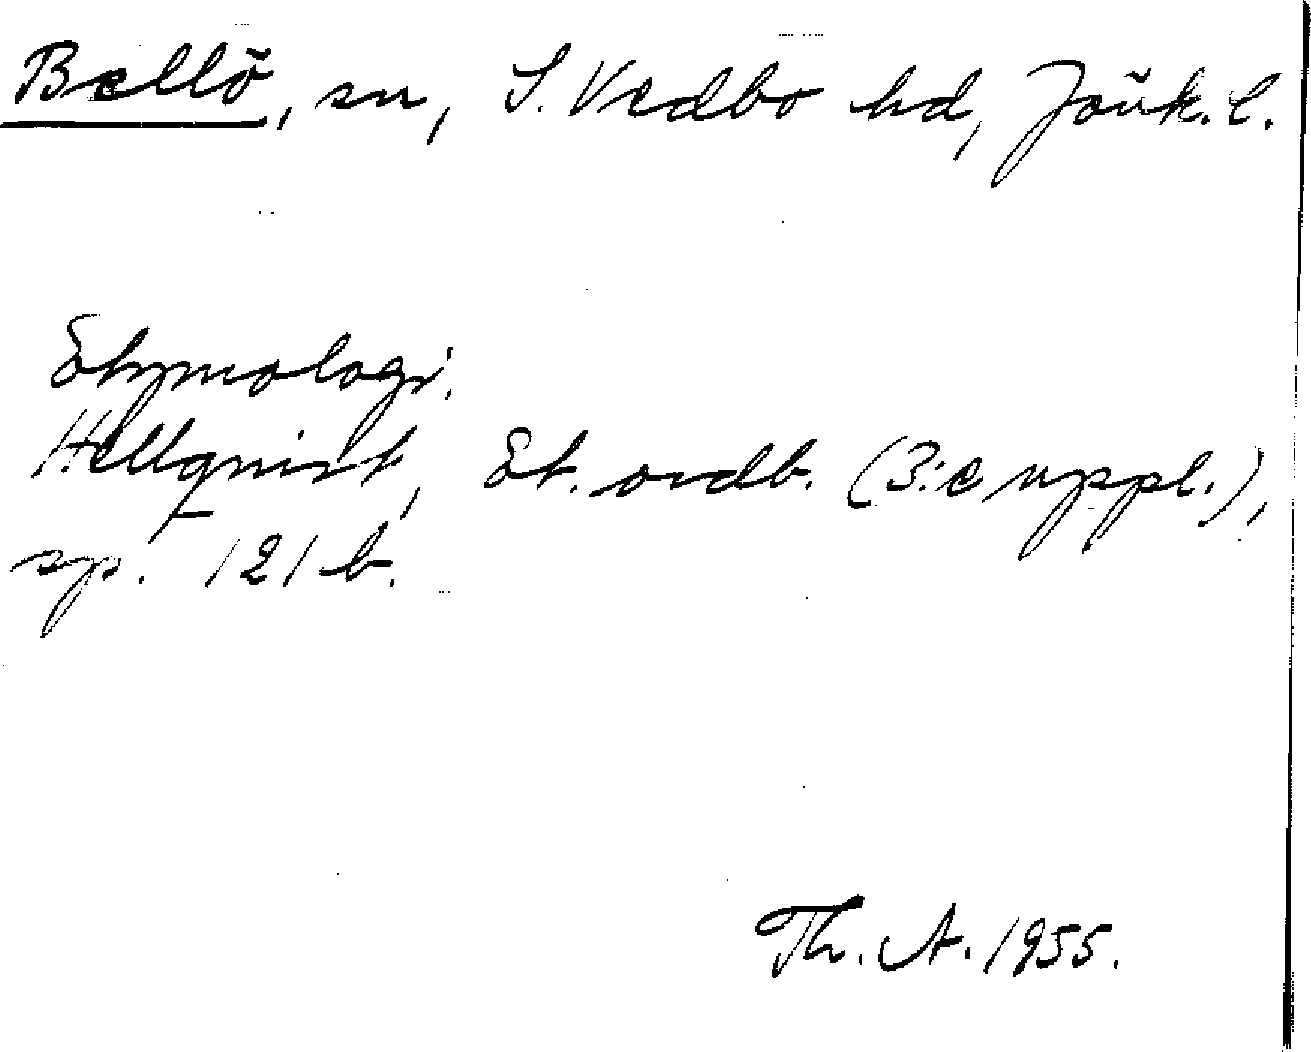 Bellö, sn, S. Vedbo hd, Jönk. l.
Etymologi.
Hellquist, Et. ordb. (3:e uppl.),
sp. 121 b.
Th. A. 1955.